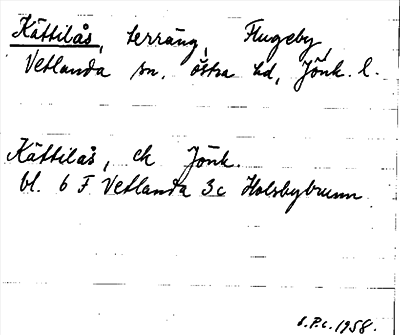 Kättilås, terräng, Flugeby,
Vetlanda sn, östra hd, Jönk. l.
Kättilås, ek Jönk.
bl. 6 F Vetlanda 3c Holsbybrunn
S.P.C. 1958.